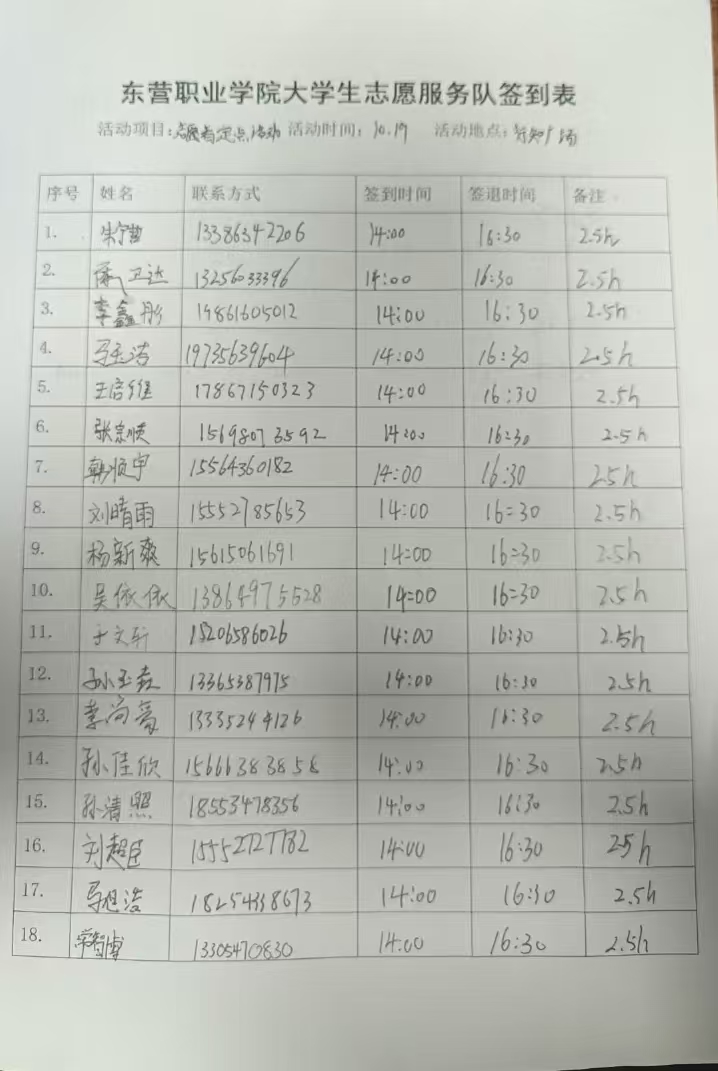 东营职业学院大学生志愿服务队签到表
活动项目:志愿者定点活动 活动时间:10.19 活动地点:行知广场
序号 姓名 联系方式 签到时间 签退时间 备注
1. 13386342206 14:00 16:30 2.5h
2. 卫达 13256033396 14:00 16:30 2.5h
3. 李鑫彤 19861605012 14:00 16:30 2.5h
4. 马玉洁 19735639604 14:00 16:30 2.5h
5. 王信维 17867150323 14:00 16:30 2.5h
6. 张宗顺 15698073592 14:00 16:30 2.5h
7. 韩顺宇 15564360182 14:00 16:30 2.5h
8. 刘晴雨 15552785653 14:00 16:30 2.5h
9. 杨新爽 15615061691 14:00 16:30 2.5h
10. 吴依依 13864975528 14:00 16:30 2.5h
11. 于文轩 15206586026 14:00 16:30 2.5h
12. 孙玉森 13365387975 14:00 16:30 2.5h
13. 李尚 13335244126 14:00 16:30 2.5h
14. 孙佳欣 15666383858 14:00 16:30 2.5h
15. 孙清照 18553478356 14:00 16:30 2.5h
16. 刘超臣 15552727782 14:00 16:30 2.5h
17. 马旭浚 18254338673 14:00 16:30 2.5h
18. 智博 13305470830 14:00 16:30 2.5h